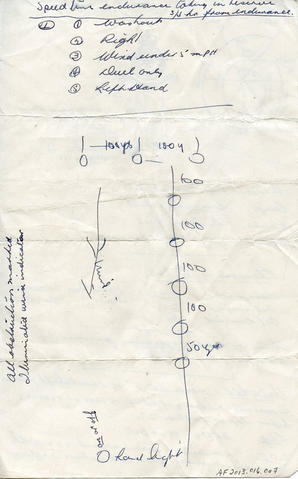 Speed time endurance taking in reserve
3/4 hr from endurance.
① Washout
② Right
③ Wind under 5 MPH
④ Duel only
⑤ Left Hand
100yds 100y
100
100
100
100
50 yds
All obstruction marked
Illuminated wind indicator
on or off
hand light
AF2013.016.007